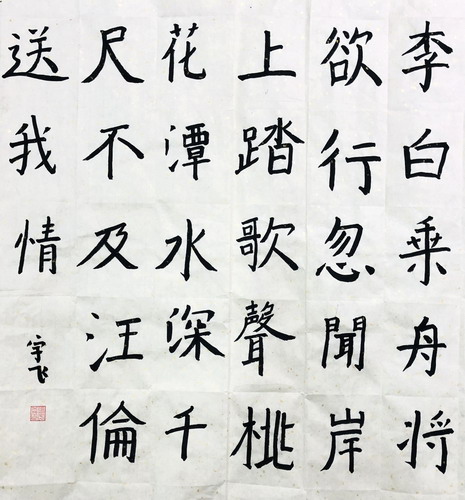 李白乘舟将
欲行忽聞岸
上踏歌聲桃
花潭水深千
尺不及汪倫
送我情
宇飞